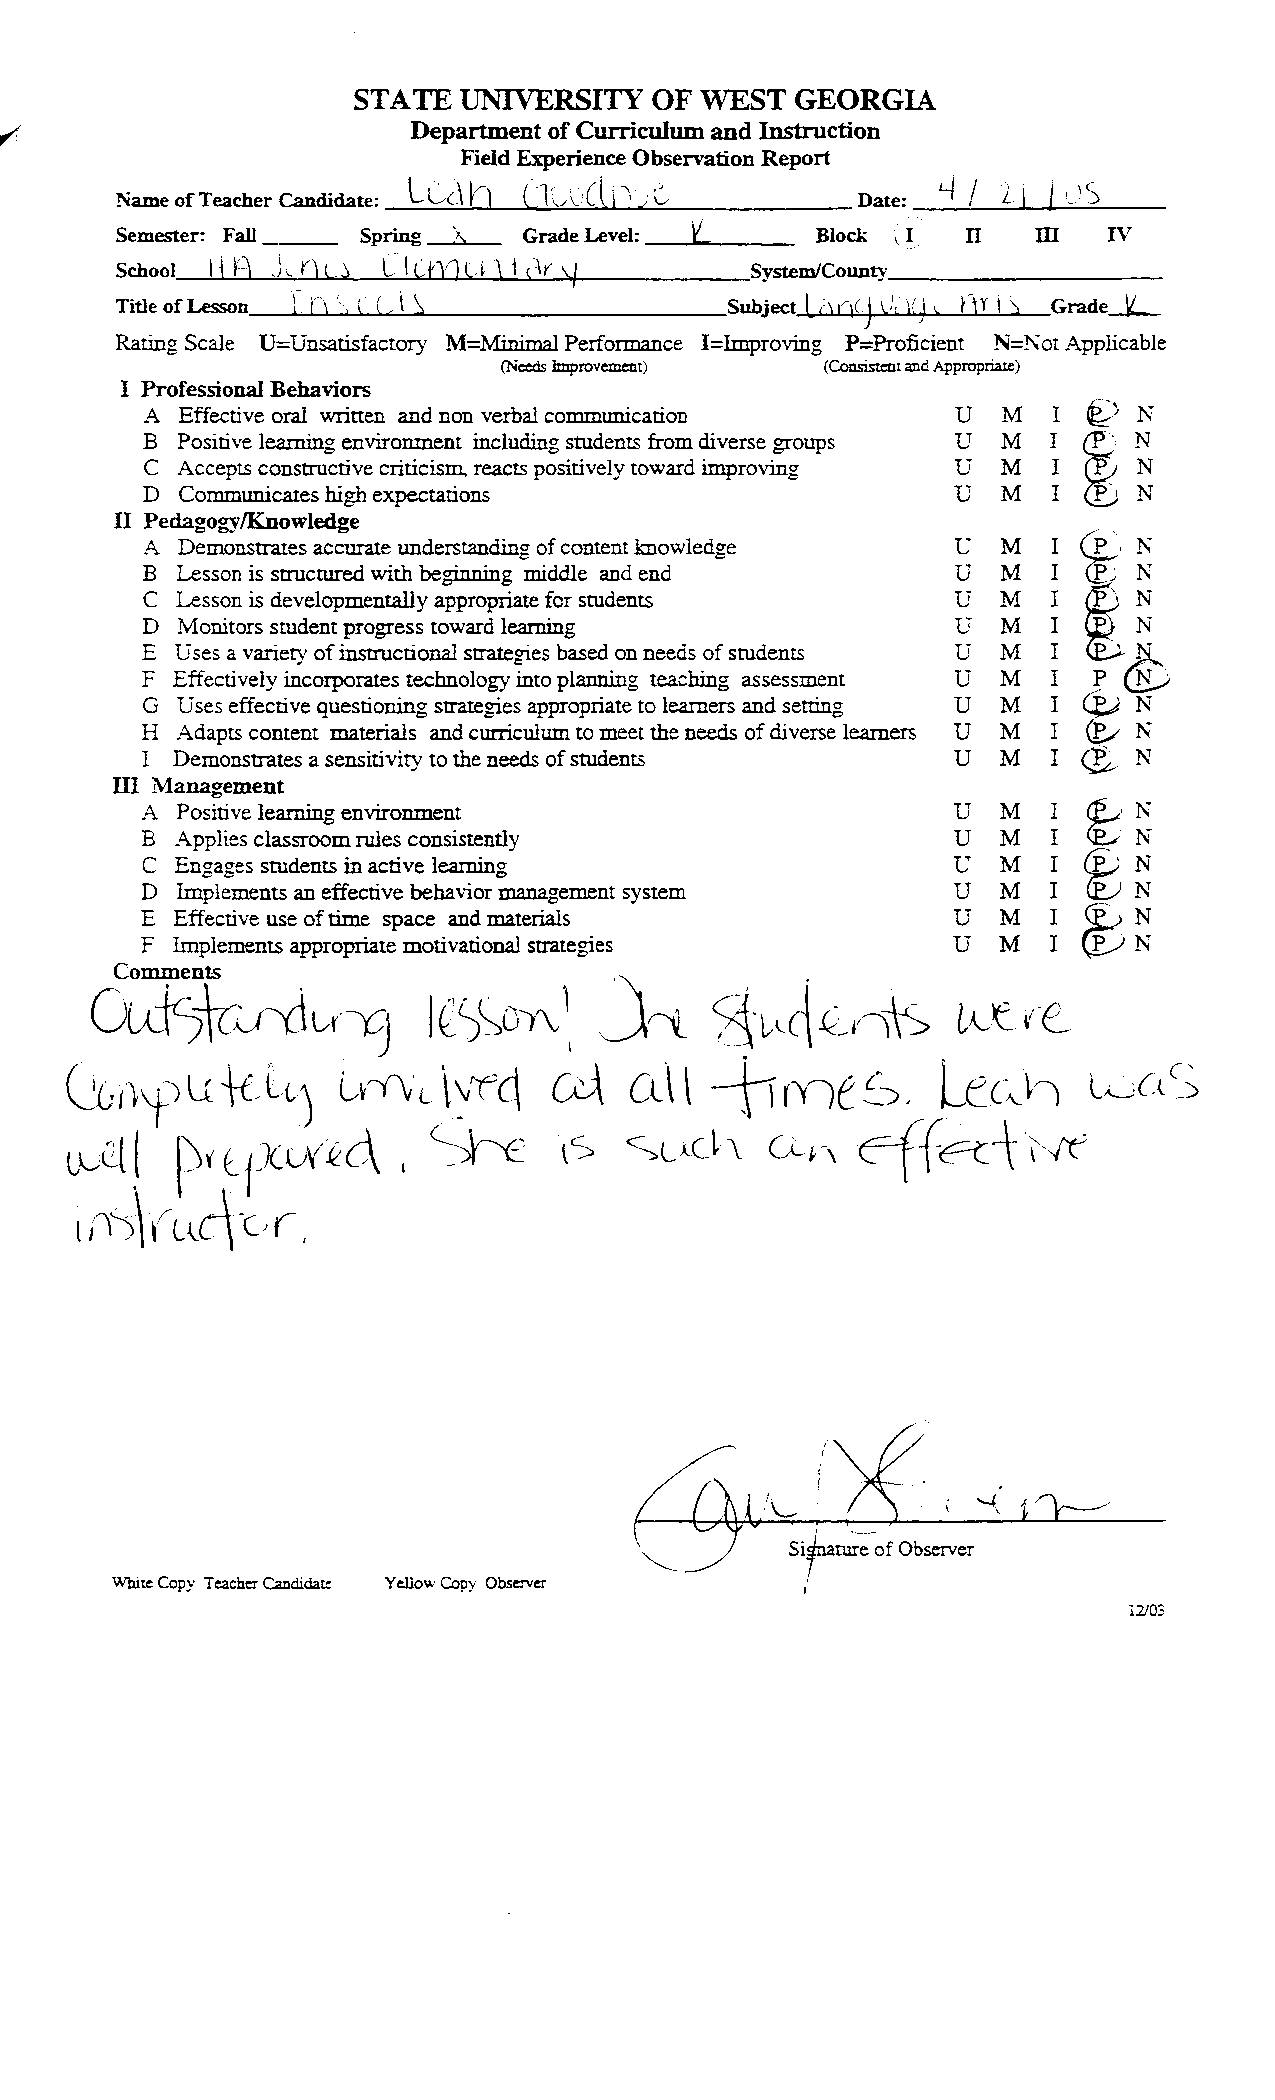 STATE UNIVERSITY OF WEST GEORGIA
Department of Curriculum and Instruction
Field Experience Observation Report
Name of Teacher Candidate: Leah Date: 4/21/05
Semester: Fall Spring X Grade Level: K Block I II III IV
School HA Jones Elementary System/County
Title of Lesson Insects Subject Language Arts Grade K
Rating Scale U=Unsatisfactory M=Minimal Performance I=Improving P=Proficient N=Not Applicable
(Needs Improvement) (Consistent and Appropriate)
I Professional Behaviors
A Effective oral written and non verbal communication U M I P N
B Positive learning environment including students from diverse groups U M I P N
C Accepts constructive criticism, reacts positively toward improving U M I P N
D Communicates high expectations U M I P N
II Pedagogy/Knowledge
A Demonstrates accurate understanding of content knowledge U M I P N
B Lesson is structured with beginning middle and end U M I P N
C Lesson is developmentally appropriate for students U M I P N
D Monitors student progress toward learning U M I P N
E Uses a variety of instructional strategies based on needs of students U M I P N
F Effectively incorporates technology into planning teaching assessment U M I P N
G Uses effective questioning strategies appropriate to learners and setting U M I P N
H Adapts content materials and curriculum to meet the needs of diverse learners U M I P N
I Demonstrates a sensitivity to the needs of students U M I P N
III Management
A Positive learning environment U M I P N
B Applies classroom rules consistently U M I P N
C Engages students in active learning U M I P N
D Implements an effective behavior management system U M I P N
E Effective use of time space and materials U M I P N
F Implements appropriate motivational strategies U M I P N
Comments
Outstanding lesson! The students were
completely involved at all times. Leah was
well prepared. She is such an effective
instructor.
Signature of Observer
White Copy Teacher Candidate Yellow Copy Observer
12/03